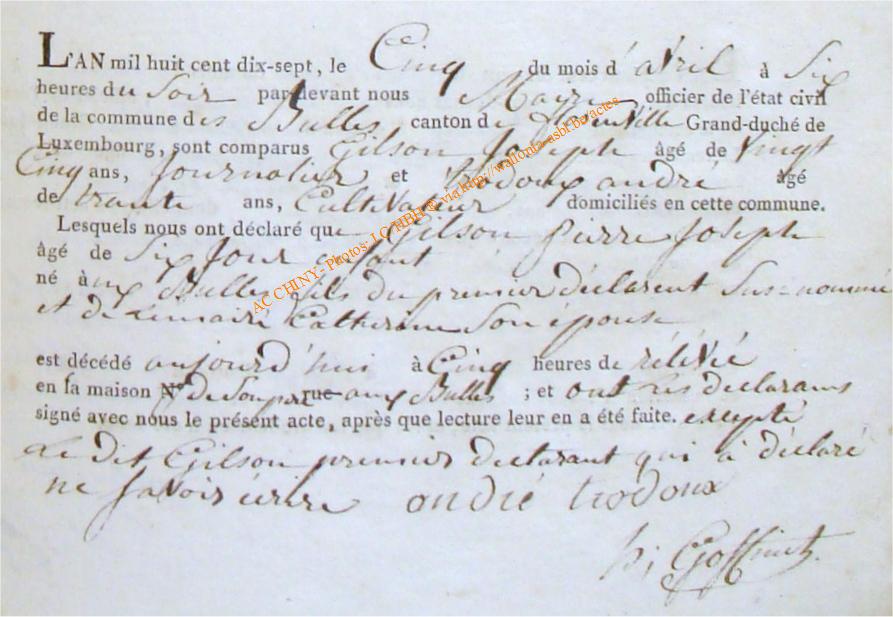 L'AN mil huit cent dix-sept, le Cinq du mois d'avril à Six
heures du Soir par-devant nous Maire officier de l'état civil
de la commune des Bulles canton de florenville Grand-duché de
Luxembourg, sont comparus Gilson Joseph âgé de vingt
Cinq ans, Journalier et trodoux andré âgé
de trante ans, Cultivateur domiciliés en cette commune.
Lesquels nous ont déclaré que Gilson Pierre Joseph
âgé de Six Jour enfant
né à aux Bulles fils du premier déclarent Sus-nommé
et de Lemaire Catherine Son épouse
est décédé aujourd'hui à Cinq heures de rélévé
en sa maison N° de Son père rue aux Bulles ; et ont Les declarans
signé avec nous le présent acte, après que lecture leur en a été faite. excepté
Le dit Gilson premier declarant qui à déclaré
ne Savoir écrire andré trodoux
Goffinet
AC CHINY - Photos: LC HBH © via http://wallonia-asbl.be/actes